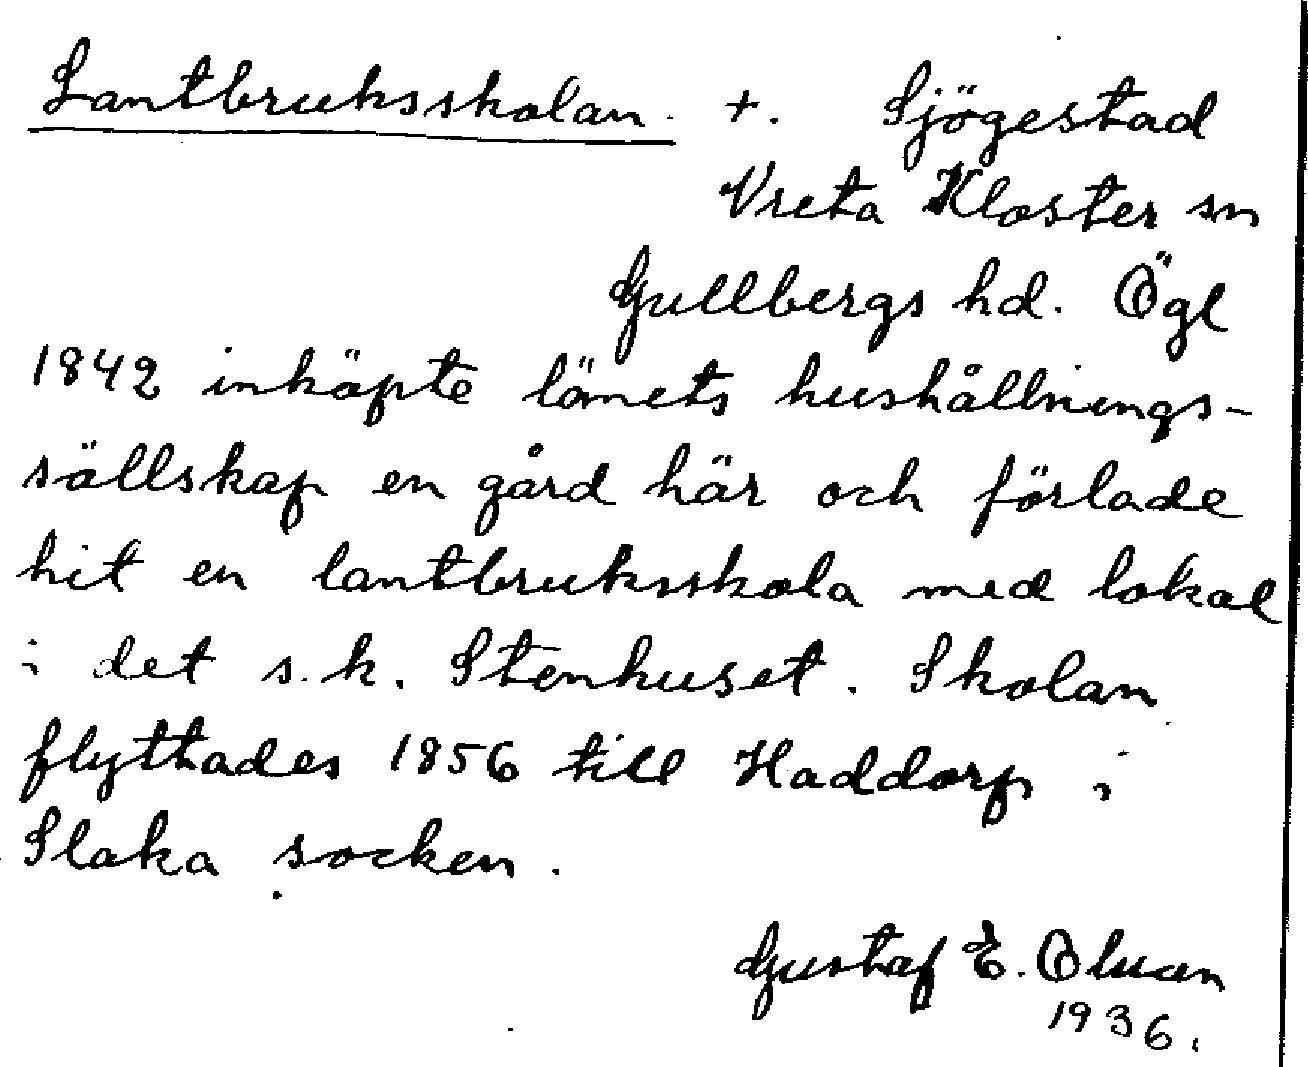 Lantbruksskolan. +. Sjögestad
Vreta Kloster sn
Gullbergs hd. Ögl
1842 inköpte länets hushållnings-
sällskap en gård här och förlade
hit en lantbruksskola med lokal
i det s.k. Stenhuset. Skolan
flyttades 1856 till Haddorp i
Slaka socken.
Gustaf E. Olsson
1936.